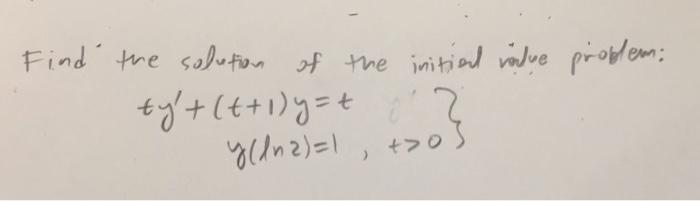 Find the solution of the initial value problem:
ty'+(t+1)y=t
y(ln2)=1, t>0 }